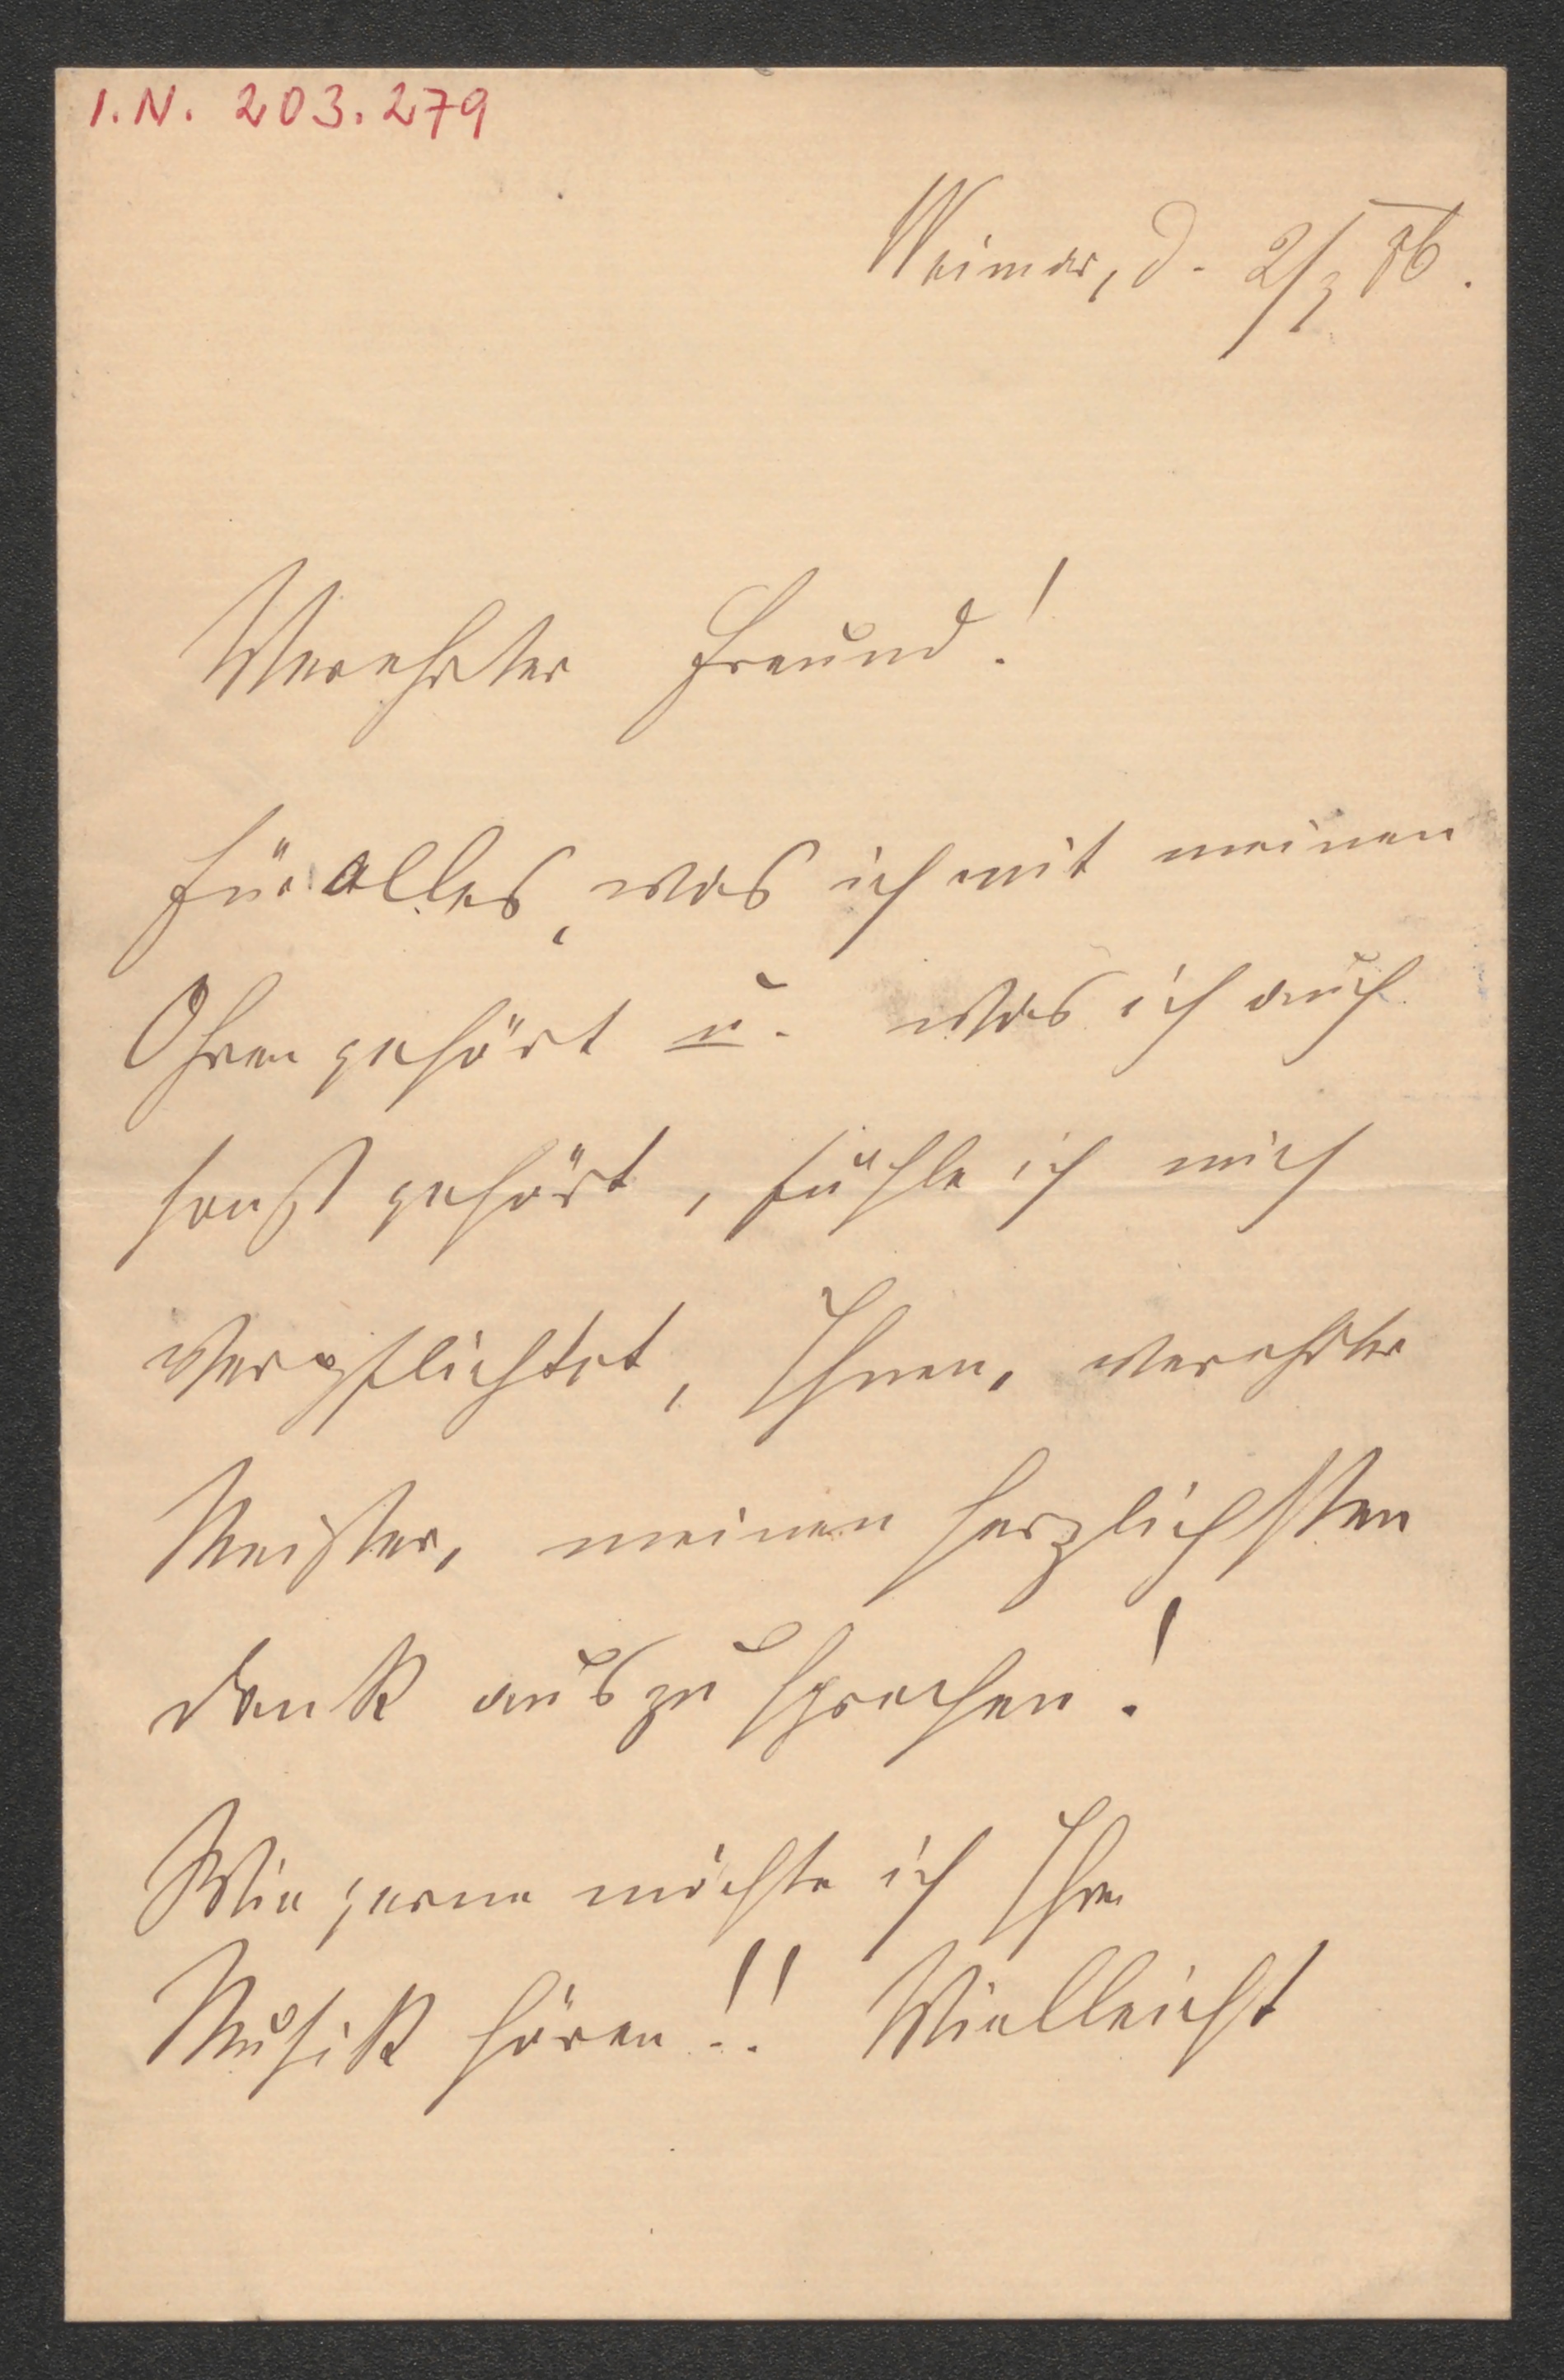 I.N. 203.279
Weimar, d. 2/3 86.
Verehrter Freund!
für alles, was ich mit meinen
Ohren gehört u. was ich auch
sonst gehört, fühle ich mich
verpflichtet, Ihnen, verehrter
Meister, meinen herzlichsten
Dank auszusprechen!
Wie gerne möchte ich Ihre
Musik hören!! Vielleicht